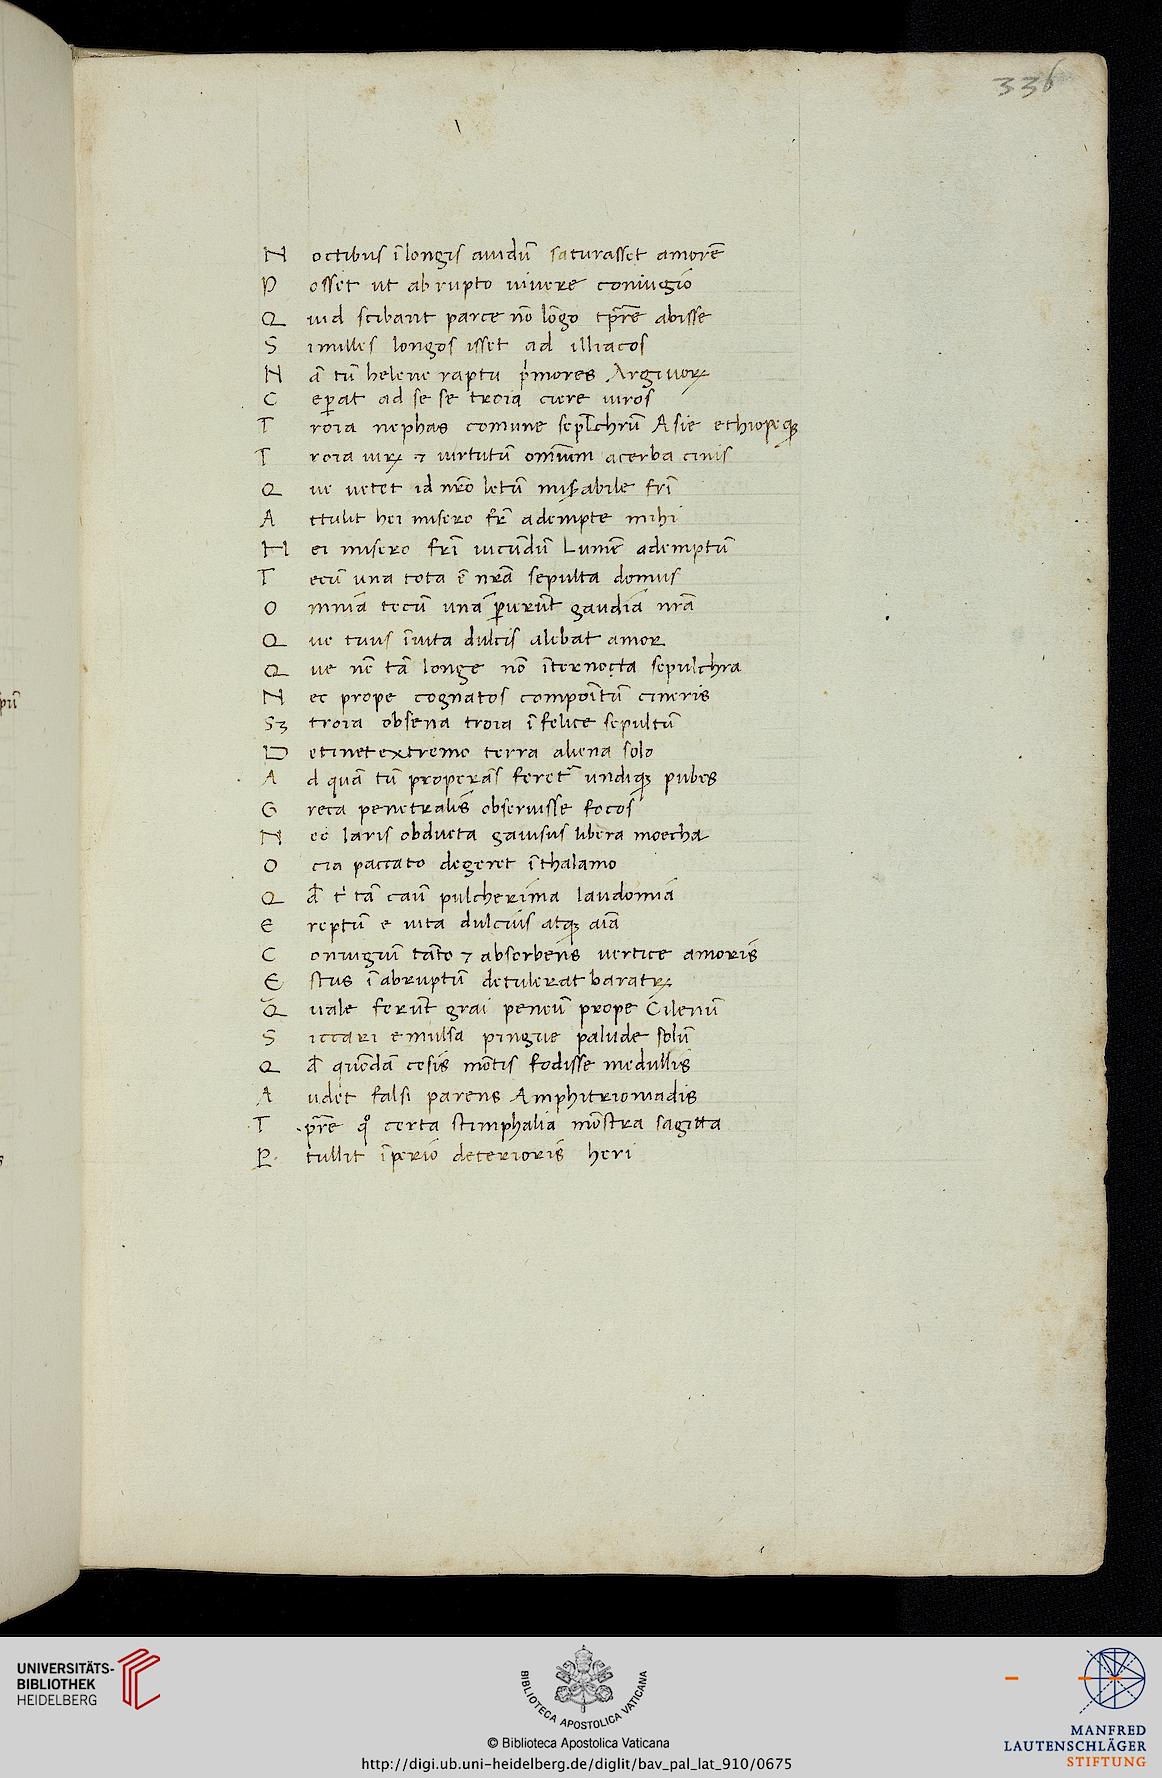 336
N octibus ī longis auidū saturasset amorē
P osset ut abrupto uiuere coniugio
Q uid scibant parce nō lōgo tp̄re abisse
S i milles longos isset ad illiacos
N ā tū helene raptu pͥmores Argiuoꝝ
C eꝑat ad se se troia ciere uiros
T roia nephas comune sepl̄chrū Asie ethiopeqꝫ
T roia uirꝝ ⁊ uirtutū omnium acerba cinis
Q ue uetet id nr̄o letū mis̄abile fr̄i
A ttulit hei misero fr̄ adempte mihi
H ei misero fr̄i iucūdū Lumē ademptū
T ecū una tota ē nr̄a sepulta domus
O mnia tecū una ꝑierūt gaudia nr̄a
Q ue tuus īuita dulcis alebat amor
Q ue nē tā longe nō īternocta sepulchra
N ec prope cognatos compoītū cineris
Sꝫ troia obsena troia īfelice sepultū
D etinet extremo terra aliena solo
A d quā tū properās feret᷑ undiqꝫ pubes
G reca penetralis obseruisse focos
N ec laris obducta gauisus libera moecha
O cia paccato degeret ī thalamo
Q d̄ tͥ tā caū pulcherima laudomia
E reptū e uita dulcius atqꝫ aīa
C oniugiū tāto ⁊ absorbens uertice amoris
E stus ī abruptū detulerat baratꝝ
Q uale ferūt grai peneū prope Cilenū
S iccari emulsa pingue palude solū
Q d̄ quōdā cesis mōtis fodisse medullis
A udet falsi parens Amphitrioniadis
T p̄re qͦ certa stimphalia mōstra sagitta
P tullit īperio deterioris heri
UNIVERSITÄTS-
BIBLIOTHEK
HEIDELBERG
BIBLIOTECA APOSTOLICA VATICANA
© Biblioteca Apostolica Vaticana
http://digi.ub.uni-heidelberg.de/diglit/bav_pal_lat_910/0675
MANFRED
LAUTENSCHLÄGER
STIFTUNG